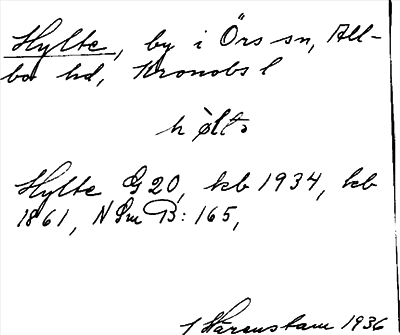 Hylte, by i Örs sn, All-
bo hd, Kronobs l
hỳltɔ
Hylte G 20, kb 1934, kb
1861, NSm B: 165,
Härenstam 1936